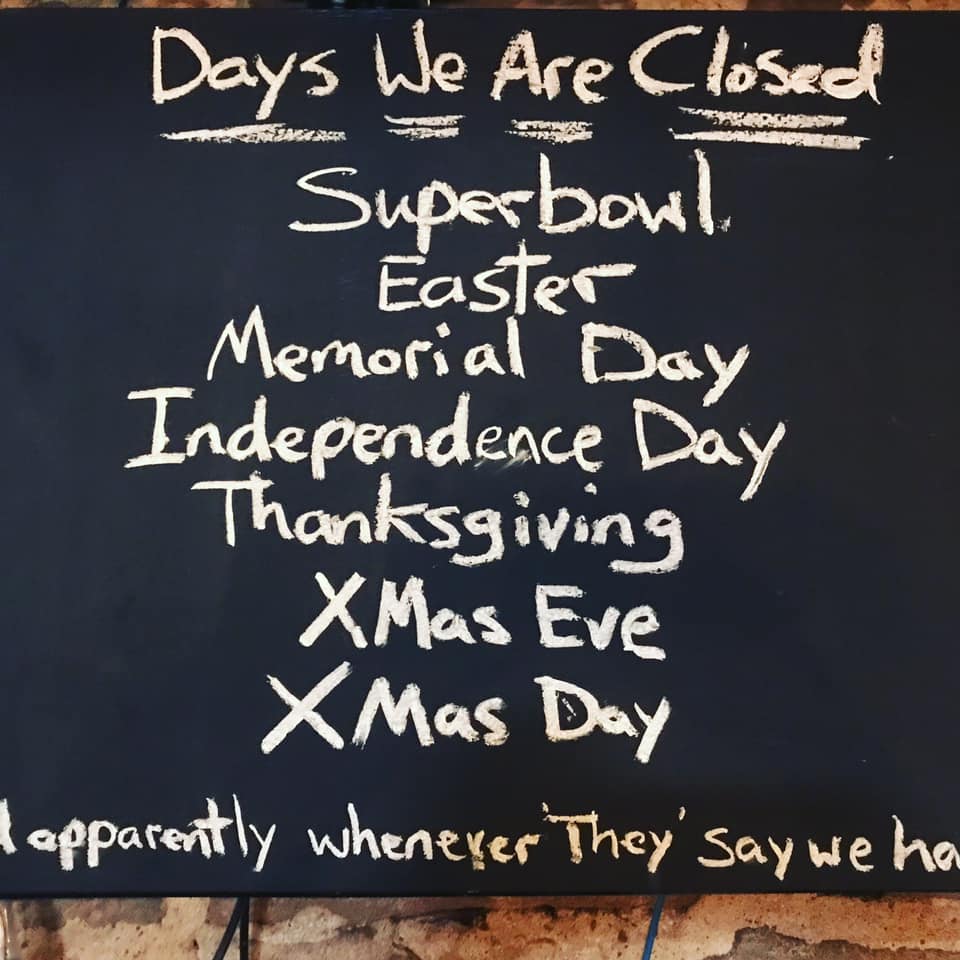 Days We Are Closed
Superbowl
Easter
Memorial Day
Independence Day
Thanksgiving
XMas Eve
XMas Day
apparently whenever 'They' say we ha